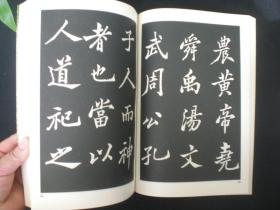 農黄帝堯
舜禹湯文
武周公孔
子人而神
者也當以
人道祀之